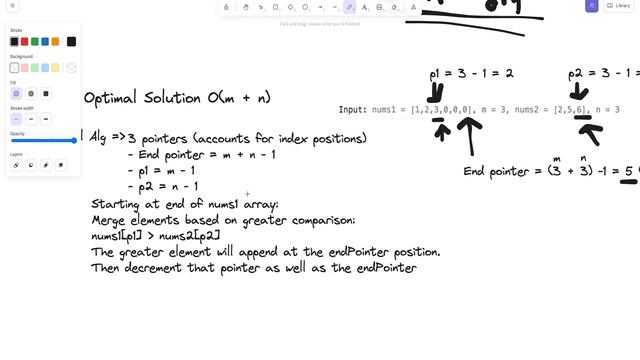 Library
Click and drag, release when you're finished
Stroke
Background
Fill
Stroke width
Opacity
Layers
p1 = 3 - 1 = 2
p2 = 3 - 1 =
Optimal Solution O(m + n)
Input: nums1 = [1,2,3,0,0,0], m = 3, nums2 = [2,5,6], n = 3
Alg => 3 pointers (accounts for index positions)
- End pointer = m + n - 1
- p1 = m - 1
- p2 = n - 1
m n
End pointer = (3 + 3) -1 = 5
Starting at end of nums1 array:
Merge elements based on greater comparison:
nums1[p1] > nums2[p2]
The greater element will append at the endPointer position.
Then decrement that pointer as well as the endPointer